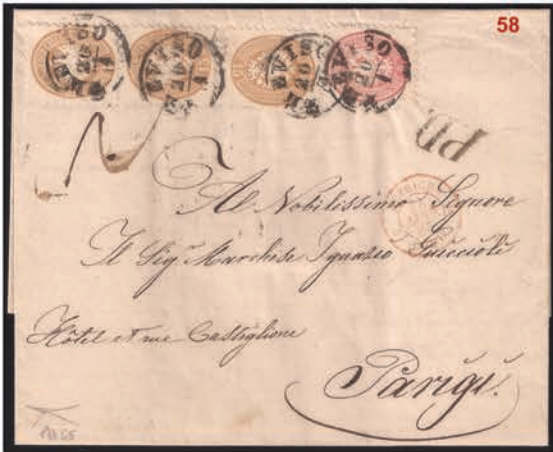 58
TREVISO 20 1
TREVISO 20 1
TREVISO 20 1
TREVISO 20 1
PD
2
Al Nobilissimo Signore
Il Sigr Marchese Ignazio Guiccioli
Hôtel et rue Castiglione
Parigi.